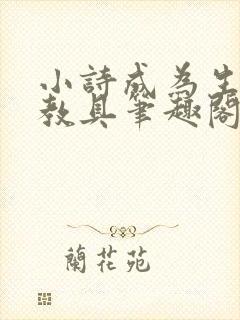 小詩成為生
教具筆趣閣
蘭花苑